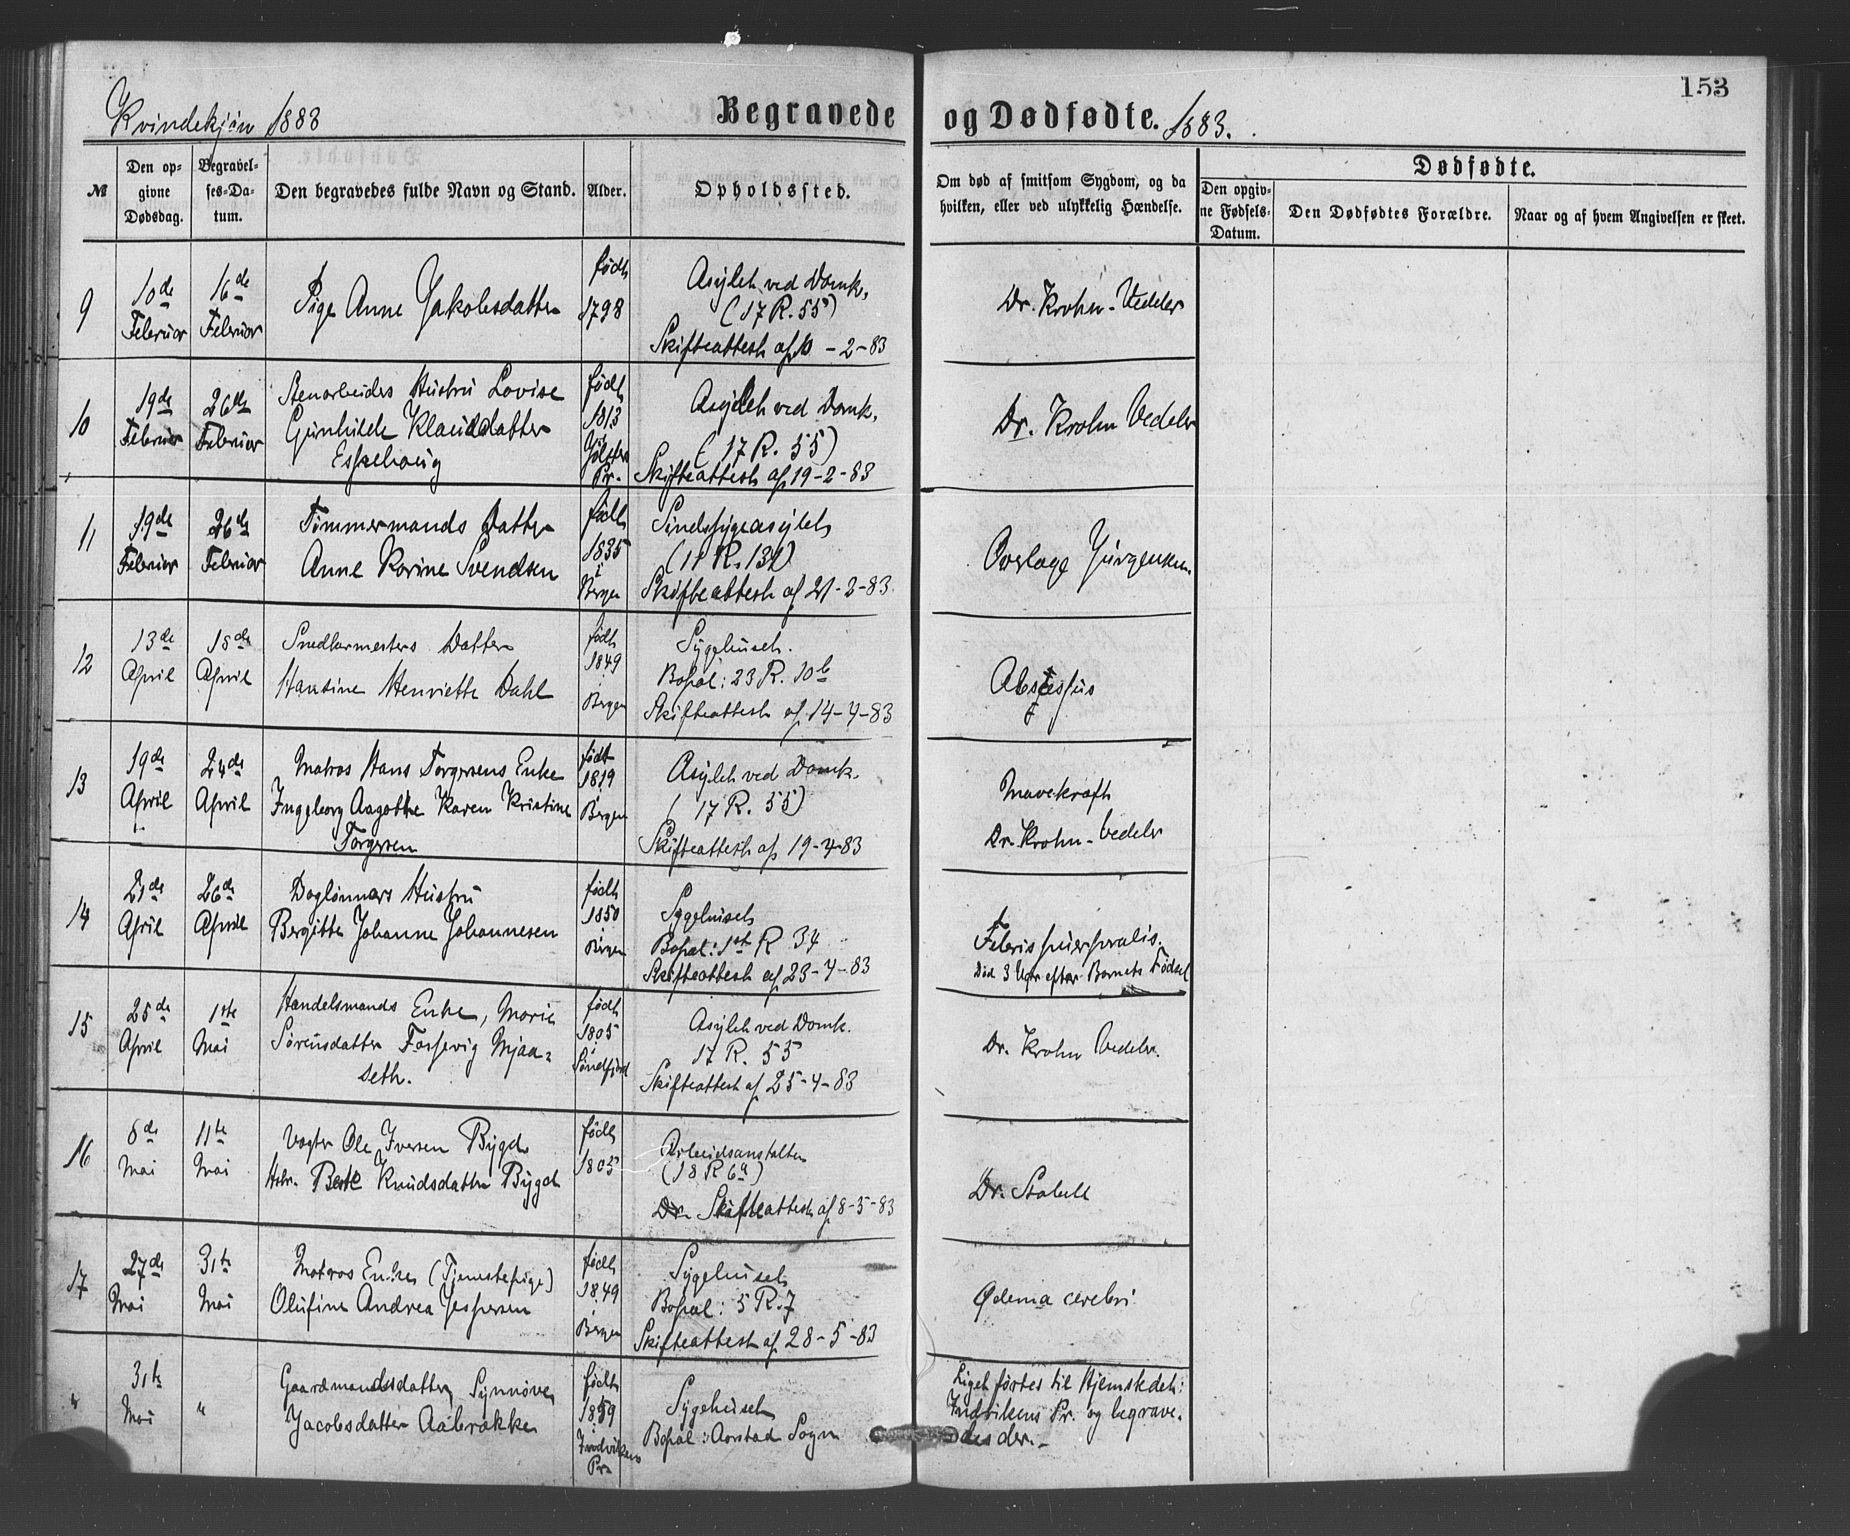 153
Kvindekjøn 1883
Begravede og Dødfødte. 1883.
№
Den op-
givne
Dødsdag.
Begravel-
ses-Da-
tum.
Den begravedes fulde Navn og Stand.
Alder.
Opholdssted.
Om død af smitsom Sygdom, og da
hvilken, eller ved ulykkelig Hændelse.
Dødfødte.
Den opgiv-
ne Fødsels-
Datum.
Den Dødfødtes Forældre.
Naar og af hvem Angivelsen er skeet.
9
10de
Februar
16de
Februar
Pige Anne Jakobsdatter
født
1798
Asylet ved Domk.
(17 R. 55)
Skifteattest af 10-2-83
Dr. Krohn-Vedeler
10
19de
Februar
26de
Februar
Stenarbeiders Hustru Lovise
Gunhilde Klausdatter
Eskehoug
født
1813
Jølster
Pr.
Asylet ved Domk.
(17 R. 55)
Skifteattest af 19-2-83
Dr. Krohn Vedeler
11
19de
Februar
26de
Februar
Timmermands Datter
Anne Karine Svendsen
født
1835
i
Bergen
Sindssygeasylet
Skifteattest af 21-2-83
Overlæge Jürgensen
12
13de
April
18de
April
Snedkermesters Datter
Hansine Henriette Dahl
født
1849
i
Bergen
Sygehuset.
Bopæl: 23 R. 10b
Skifteattest af 14-4-83
13
19de
April
24de
April
Matros Hans Torgersens Enke
Ingeborg Aagothe Karen Kristine
Torgersen
født
1819
Bergen
Asylet ved Domk.
(17 R. 55)
Skifteattest af 19-4-83
Mavekræft
Dr. Krohn-Vedeler
14
21de
April
26de
April
Daglønners Hustru
Bergitte Johanne Johannesen
født
1850
i
Bergen
Sygehuset
Bopæl: 1st R 34
Skifteattest af 23-4-83
Febris puerperalis.
Død 3 Uger efter Barnets Fødsel
15
25de
April
1ste
Mai
Handelsmands Enke, Marie
Sørensdatter Fossevig Mjaa-
seth.
født
1805
i
Søndfjord
Asylet ved Domk.
17 R. 55
Skifteattest af 25-4-83
Dr. Krohn Vedeler.
16
8de
Mai
11te
Mai
Vægter Ole Iversen Bygd
Hstr. Berte Knudsdatter Bygd
født
1805
Arbeidsanstalten
(18 R 6a)
Dr. Skifteattest af 8-5-83
Dr. Stabell
17
27de
Mai
31te
Mai
Matros Enke (Tjenestepige)
Olufine Andrea Jespersen
født
1849
i
Bergen
Sygehuset
Bopæl: 5 R. 7
Skifteattest af 28-5-83
Ødema cerebri
"
31te
Mai
"
Gaardmandsdatter Synnøve
Jacobsdatter Aabrække
født
1859
i
Indvikens
Pr.
Sygehuset
Bopæl: Aarstad Sogn
Liget førtes til Hjemstedet:
Indvikens Pr. og begrave-
des der.